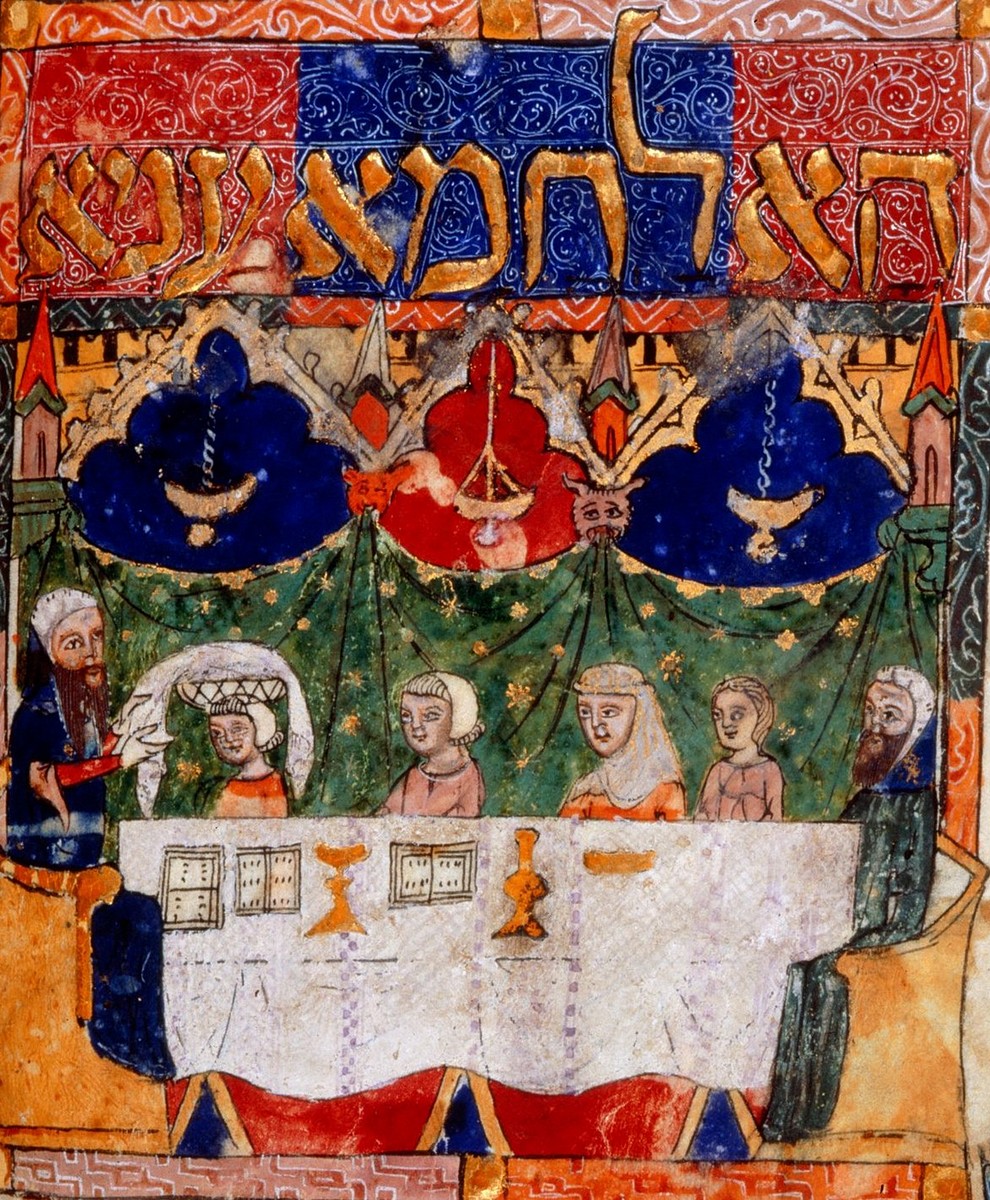 הא לחמא עניא